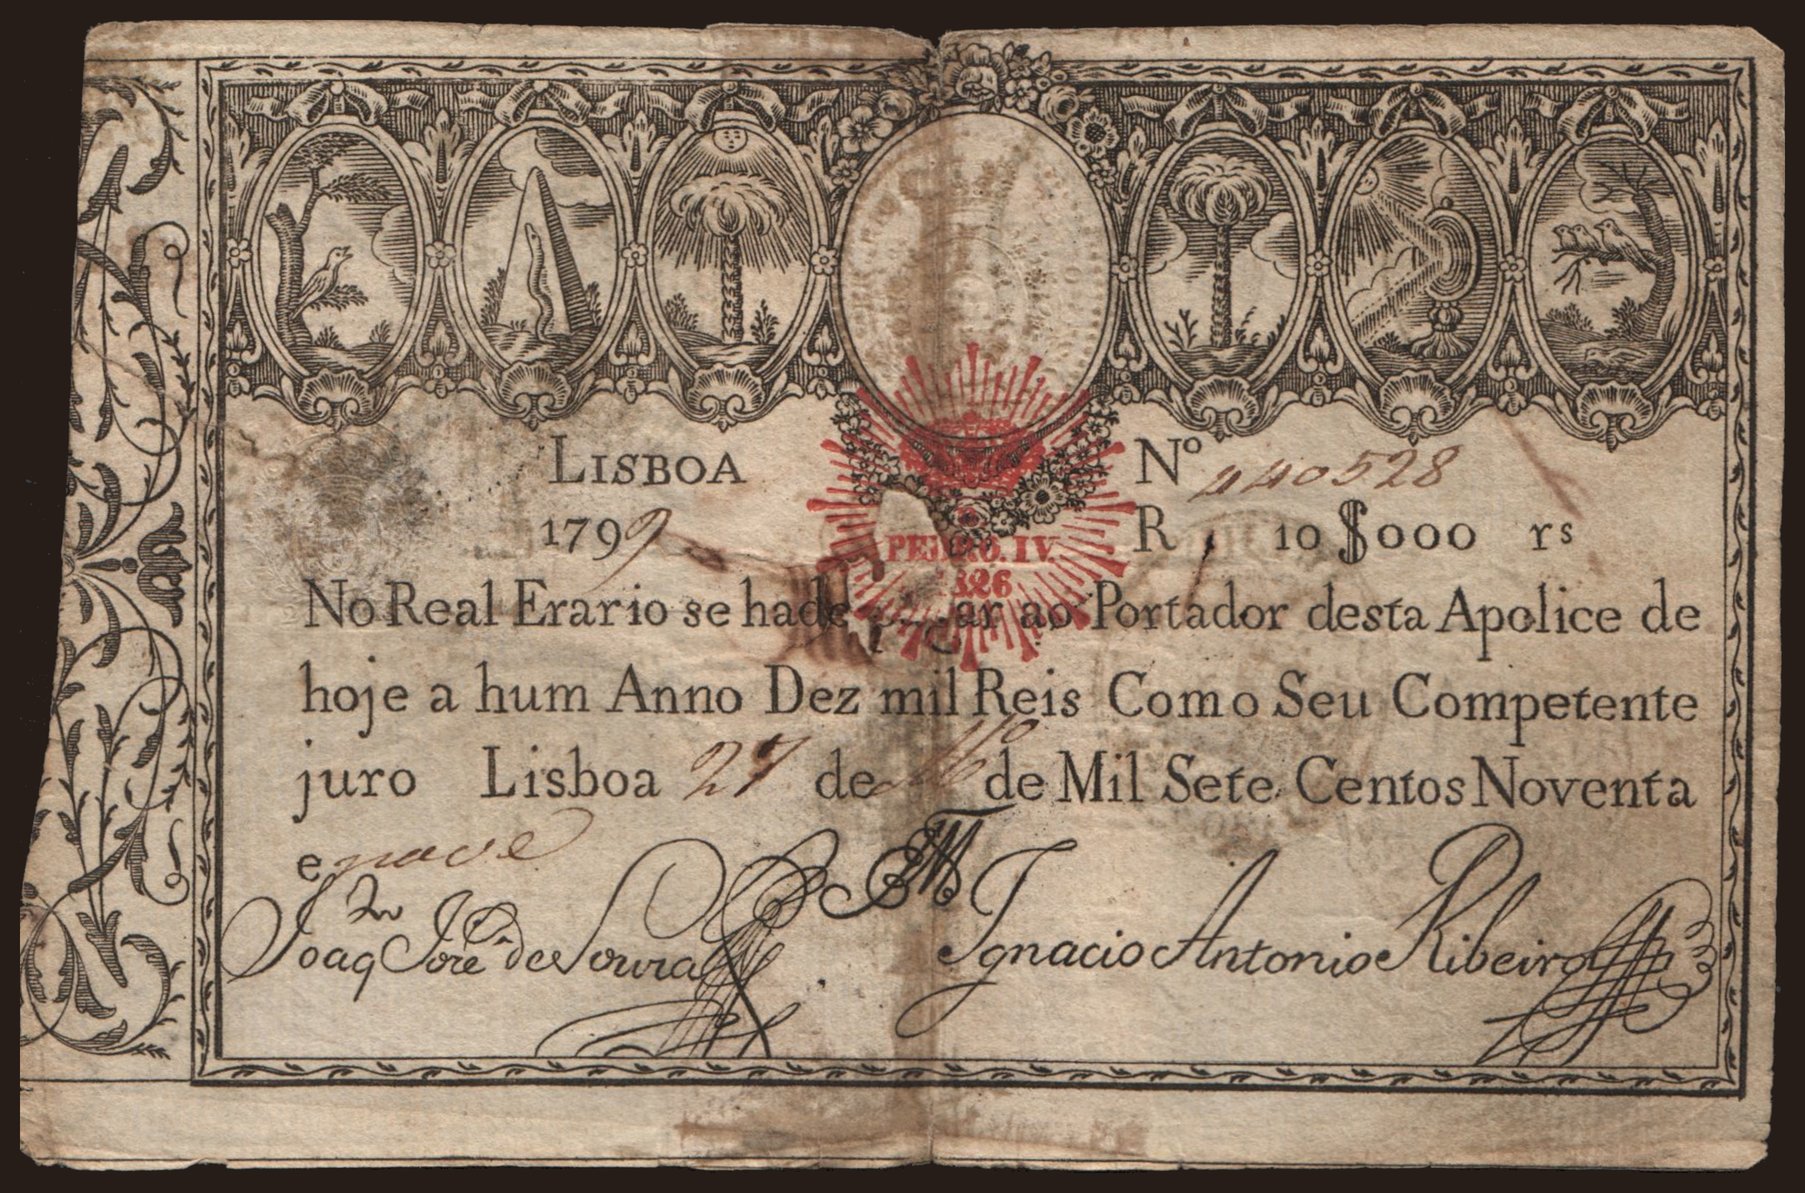 LISBOA
Nº 440528
1799
R 10$000 rs
PEDRO. IV
1826
No Real Erario se hade ar ao Portador desta Apolice de
hoje a hum Anno Dez mil Reis Como Seu Competente
juro Lisboa 27 de de Mil Sete Centos Noventa
e nove
Joaqᵐ José de Souza
Ignacio Antonio Ribeiro